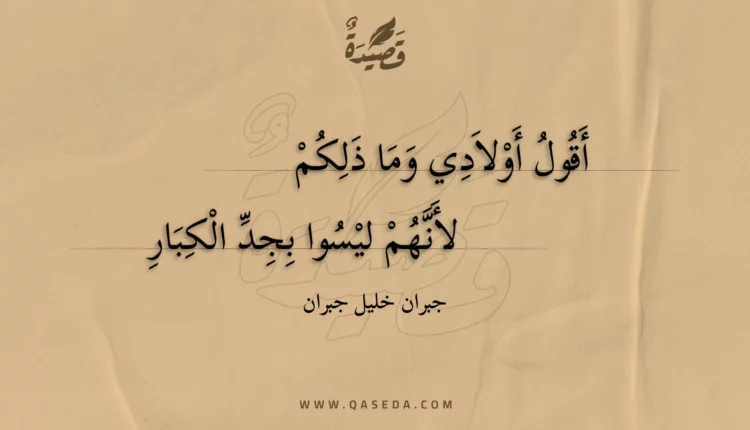 قَصِيْدَةٌ
أَقُولُ أَوْلاَدِي وَمَا ذَلِكُمْ
لأَنَّهُمْ ليْسُوا بِجِدِّ الْكِبَارِ
جبران خليل جبران
WWW.QASEDA.COM